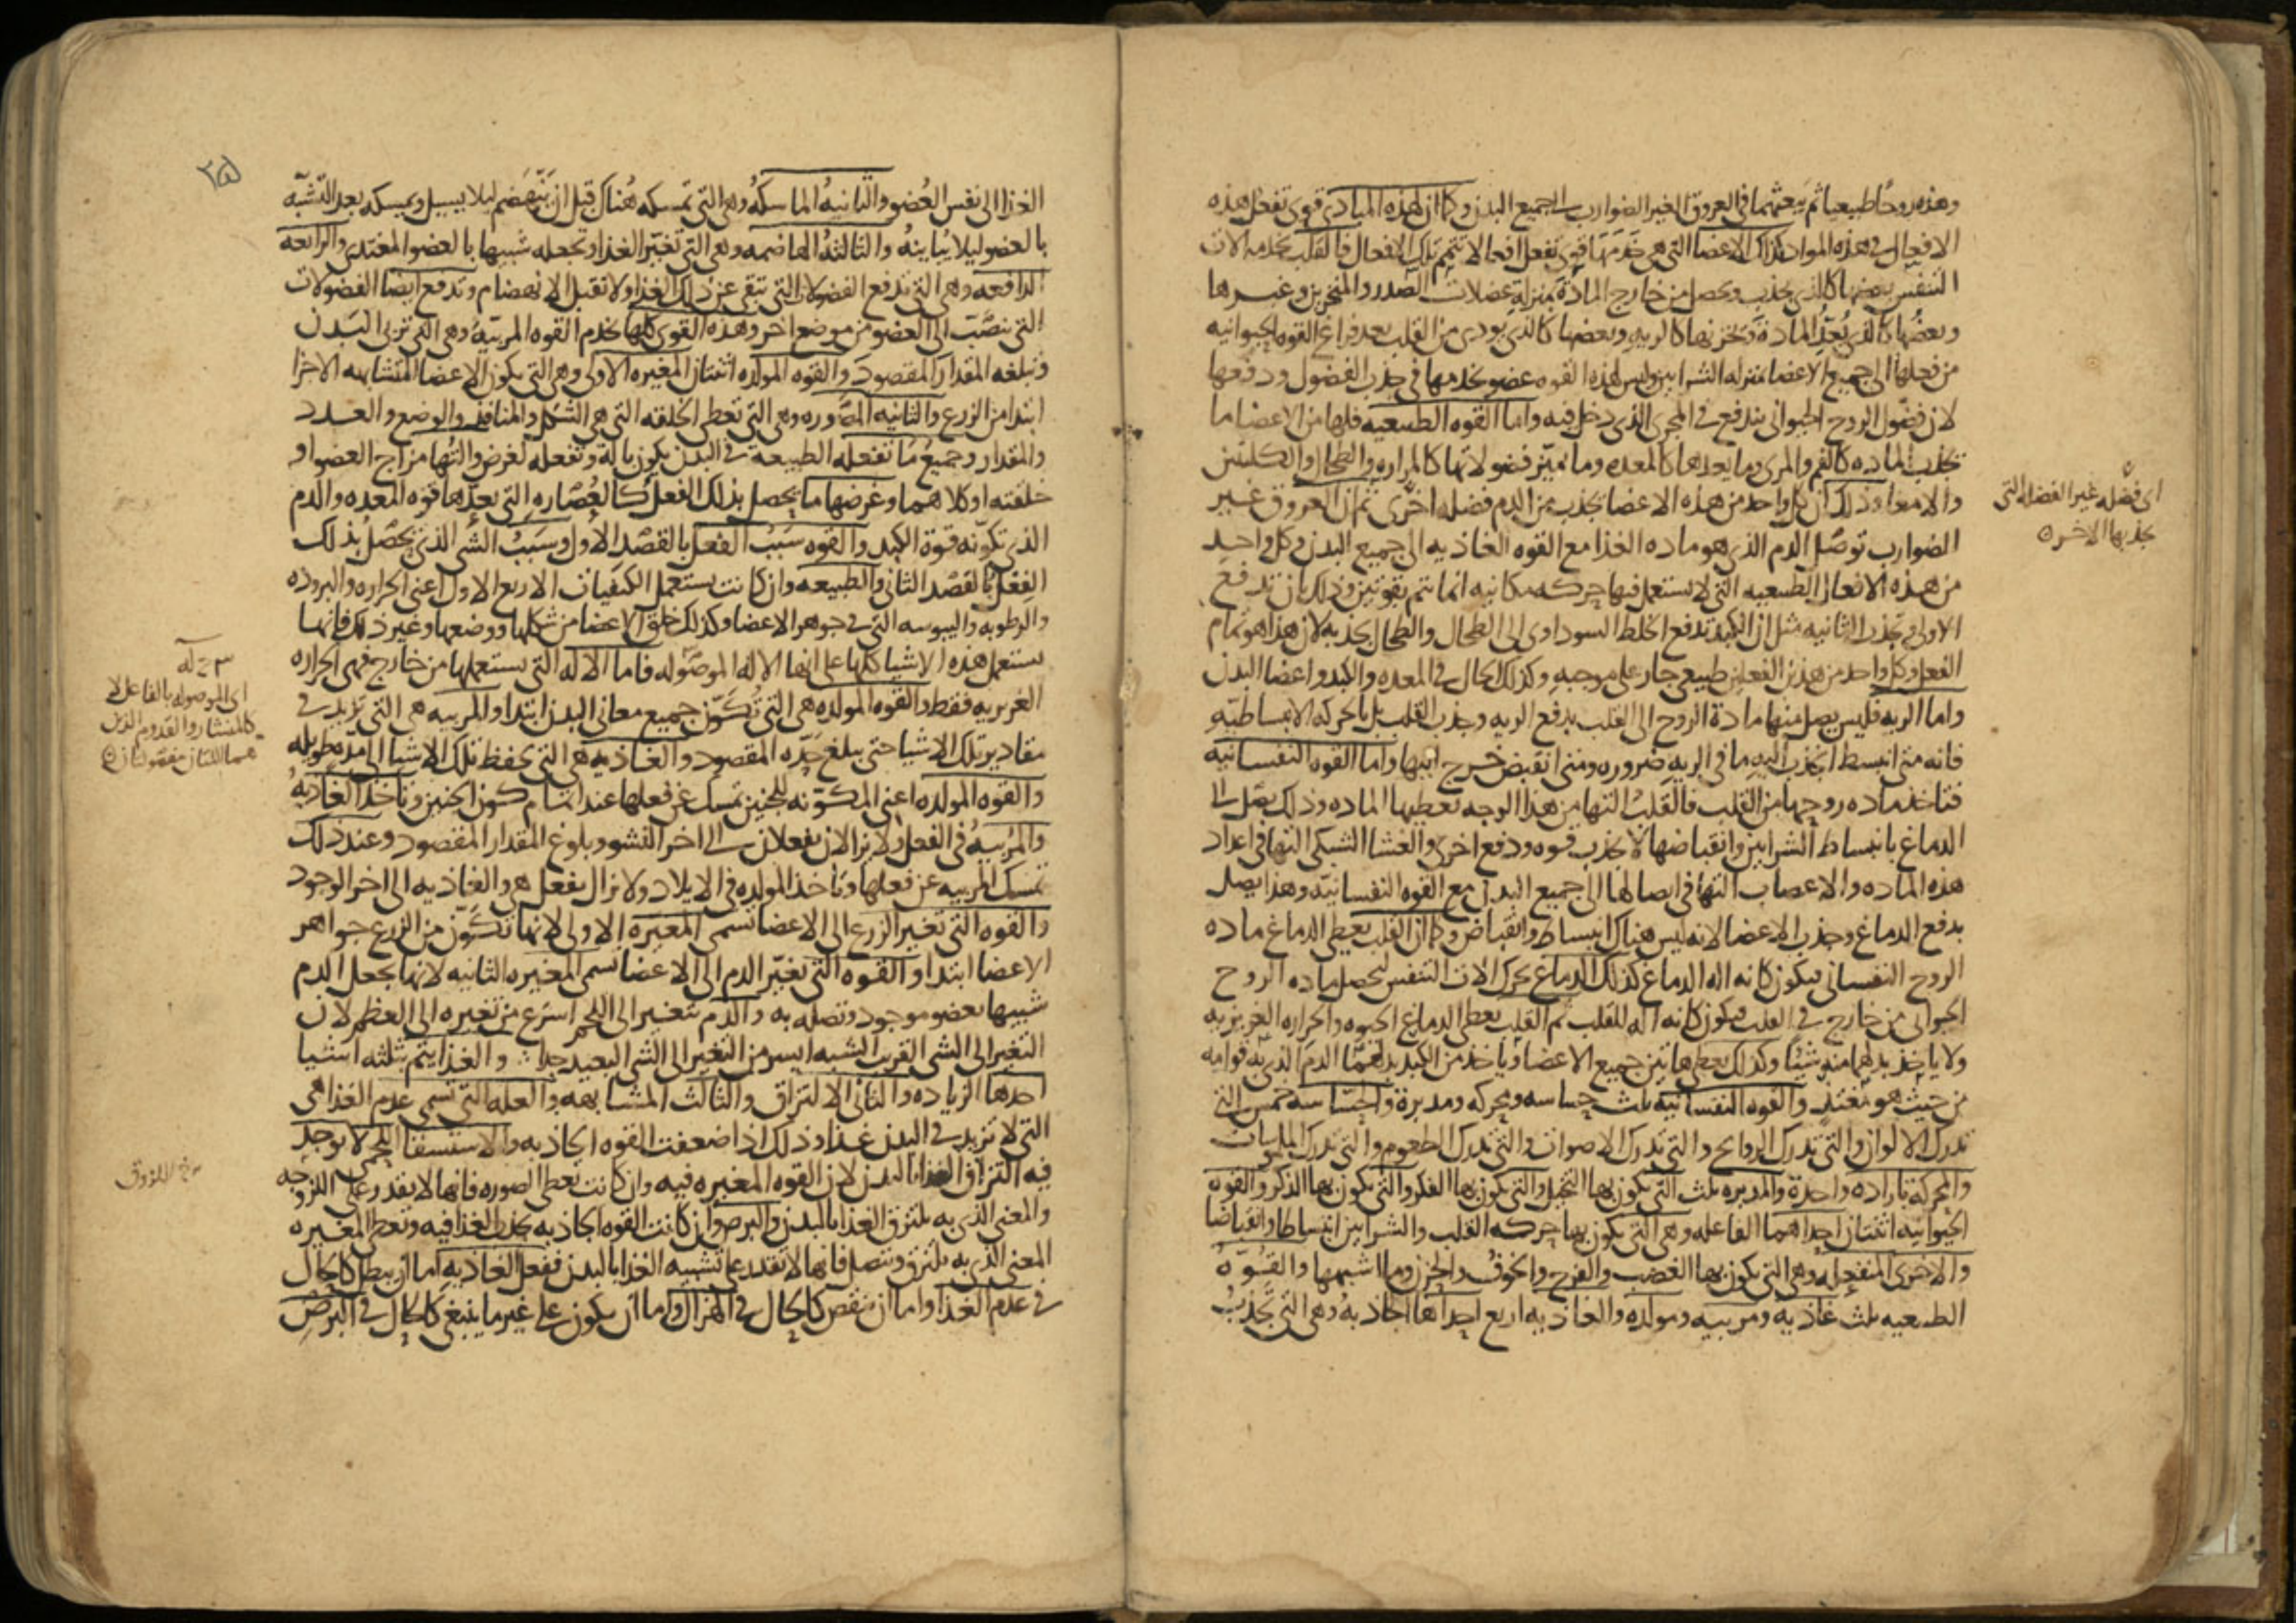 وهذه روحًا طبيعيا ثم يبعثهما في العروق الغير الضوارب الى جميع البدن وكما ان لهذه المبادى قوى تفعل هذه
الافعال في هذه المواد كذلك الاعضا التي هي خدمها قوى تفعل افعالا تتم تلك الافعال فالقلب يخدمه الات
التنفس بعضها كالذي يجذب ويحصل من خارج المادة بمنزلة عضلات الصدر والمنخرين وغيرها
وبعضها كالذي يُعِدّ المادة ويخزنها كالريه وبعضها كالذي يودي من القلب بعد فراغ القوه الحيوانيه
من فعلها الى جميع الاعضا بمنزله الشرايين وليس لهذه القوه عضو يخدمها في جذب الفضول ودفعها
لان فضول الروح الحيواني يندفع في المجرى الذي دخل فيه واما القوه الطبيعيه فلها من الاعضا ما
يجذب الماده كالفم والمرى وما يعدها كالمعده وما يميز فضولاتها كالمراره والطحال والكليتين
والامعا وذلك ان كل واحد من هذه الاعضا يجذب من الدم فضله اخرى ثم ان العروق غير
الضوارب توصل الدم الذي هو ماده الغذا مع القوه الغاذيه الى جميع البدن وكل واحد
من هذه الافعال الطبيعيه التي لا يستعمل فيها حركه مكانيه انما يتم بقوتين وذلك بان تدفع
الاولى وتجذب الثانيه مثل ان الكبد تدفع الخلط السوداوي الى الطحال والطحال يجذبه لان هذا هو تمام
الفعل وكل واحد من هذين الفعلين طبيعي جار على موجبه وكذلك الحال في المعده والكبد واعضا البدن
واما الريه فليس يصل منها مادة الروح الى القلب بدفع الريه وجذب القلب بل بالحركه الانبساطيّه
فانه متى انبسط انجذب اليه ما في الريه ضروره ومتى انقبض خرج اليها واما القوه النفسانيه
فتاخذ ماده روحها من القلب فالقلب التها من هذا الوجه يعطيها الماده وذلك يصل الى
الدماغ بانبساط الشرايين وانقباضها لا بجذب قوه ودفع اخرى والغشا الشبكي التها في اعداد
هذه الماده والاعصاب التها في ايصالها الى جميع البدن مع القوه النفسانيّه وهذا يصل
بدفع الدماغ وجذب الاعضا لانه ليس هناك انبساط وانقباض وكما ان القلب يعطي الدماغ ماده
الروح النفساني فيكون كانه اله الدماغ كذلك الدماغ يحرك الات التنفس لتحصل ماده الروح
الحيواني من خارج في القلب فيكون كانه اله للقلب ثم القلب يعطي الدماغ الحيوه والحراره الغريزيه
ولا ياخذ بدلهما منه شيئا وكذلك يعطي هاتين جميع الاعضا وياخذ من الكبد بدلهما الدم الذي به قوامه
من حيث هو مغتذ والقوه النفسانيه ثلث حساسه ومحركه ومدبرة والحسّاسه خمس التي
تدرك الالوان والتي تدرك الروايح والتي تدرك الاصوات والتي تدرك الطعوم والتي تدرك الملموسات
والمحركة باراده واحدة والمدبره ثلث التي يكون بها التخيل والتي يكون بها الفكر والتي يكون بها الذكر والقوه
الحيوانيه اثنتان احداهما الفاعله وهي التي يكون بها حركه القلب والشرايين انبساطا وانقباضا
والاخرى المنفعله وهي التي يكون بها الغضب والفرح والخوف والحزن وما اشبهها والقوّه
الطبيعيه ثلث غاذيه ومربيه ومولده والغاذيه اربع احداها الجاذبه وهي التي تجذب
اى فضله غير الفضله التي
يجذبها الاخر
٢٥
الغذا الى نفس العُضو والثانيه الماسكه وهي التي تمسكه هُناك قبل ان ينهضم ليلا يسيل ويمسكه بعد التشبّه
بالعضو ليلا يُباينهُ والثالثه الهاضمه وهي التي تغيّر الغذا وتجعله شبيها بالعضو المغتذي والرابعه
الدافعه وهي التي تدفع الفضولات التي تبقى عن ذلك الغذا ولا تقبل الانهضام وتدفع ايضا الفضولات
التي تنصّب الى العضو من موضع اخر وهذه القوى كلها تخدم القوه المربيّه وهي التي تربي البدن
وتبلغه المقدار المقصود والقوه المولده اثنتان المغيره الاولى وهي التي يكون الاعضا المتشابهه الاجزا
ابتدا من الزرع والثانيه المصوره وهي التي تعطي الخلقه التي هي الشكل والمنافذ والوضع والعدد
والمقدار وجميع ما تفعله الطبيعة في البدن يكون بالة وتفعله لغرض والتها مزاج العضو او
خلقته او كلاهما وغرضها ما يحصل بذلك الفعل كالعُصاره التي يعدّها قوه المعده والدم
الذي تكوّنه قوة الكبد والقوه سَبَبُ الفعل بالقصد الاول وسَبَبُ الشي الذي يحصل بذلك
الفعل بالقصد الثاني والطبيعه وان كانت يستعمل الكيفيات الاربع الاول اعني الحراره والبروده
والرطوبه واليبوسه التي في جوهر الاعضا وكذلك خلق الاعضا من شكلها ووضعها وغير ذلك فانها
يستعمل هذه الاشيا كلها على انها الاله الموصوله فاما الاله التي يستعملها من خارج فهي الحراره
الغريزيه فقط والقوه المولده هي التي تُكوّن جميع معاني البدن ابتدا والمربيه هي التي تزيد في
مقادير تلك الاشيا حتى يبلغ حدّه المقصود والغاذيه هي التي يحفظ تلك الاشيا الى مدّه طويله
والقوه المولده اعني المكوّنه للجنين تمسك عن فعلها عند اتمام كون الجنين وتاخذ الغاذيه
والمُربّيه في الفعل ولا يزالان يفعلان الى اخر النشو وبلوغ المقدار المقصود وعند ذلك
تمسك المربيه عن فعلها وتاخذ المولده في الايلاد ولا تزال يفعل هي والغاذيه الى اخر الوجود
والقوه التي تغير الزرع الى الاعضا تسمى المغيّره الاولى لانها تكوّن من الزرع جواهر
الاعضا ابتدا والقوه التي تغيّر الدم الى الاعضا تسمى المغيره الثانيه لانها يجعل الدم
شبيها بعضو موجود وتصله به والدم يتغير الى اللحم اسرع من تغيره الى العظم لان
التغير الى الشي القريب الشبه ايسر من التغير الى الشي البعيد جدا والغذا يتم بثلثه اشيا
احدها الزياده والثاني الالتزاق والثالث المشابهه والعله التي تسمى عدم الغذا هي
التي لا تزيد في البدن غذا وذلك اذا ضعفت القوه الجاذبه والاستسقا اللحمي لا يوجد
فيه التزاق الغذا بالبدن لان القوه المغيره فيه وان كانت تعطي الصوره فانها لا يقدر على اللزوجه
والمعنى الذي به يلتزق الغذا بالبدن والبرص وان كانت القوه الجاذبه تجذب الغذا فيه وتعطي المغيره
المعنى الذي به يلتزق ويتصل فانها لا تقدر على تشبيه الغذا بالبدن ففعل الغاذيه اما ان يبطل كالحال
في عدم الغذا واما ان ينقص كالحال في الهزال واما ان يكون على غير ما ينبغي كالحال في البرص
اى الموصوله بالفاعل لا
كالمنشار والقدوم الذين
هما اللتان مفصولتان